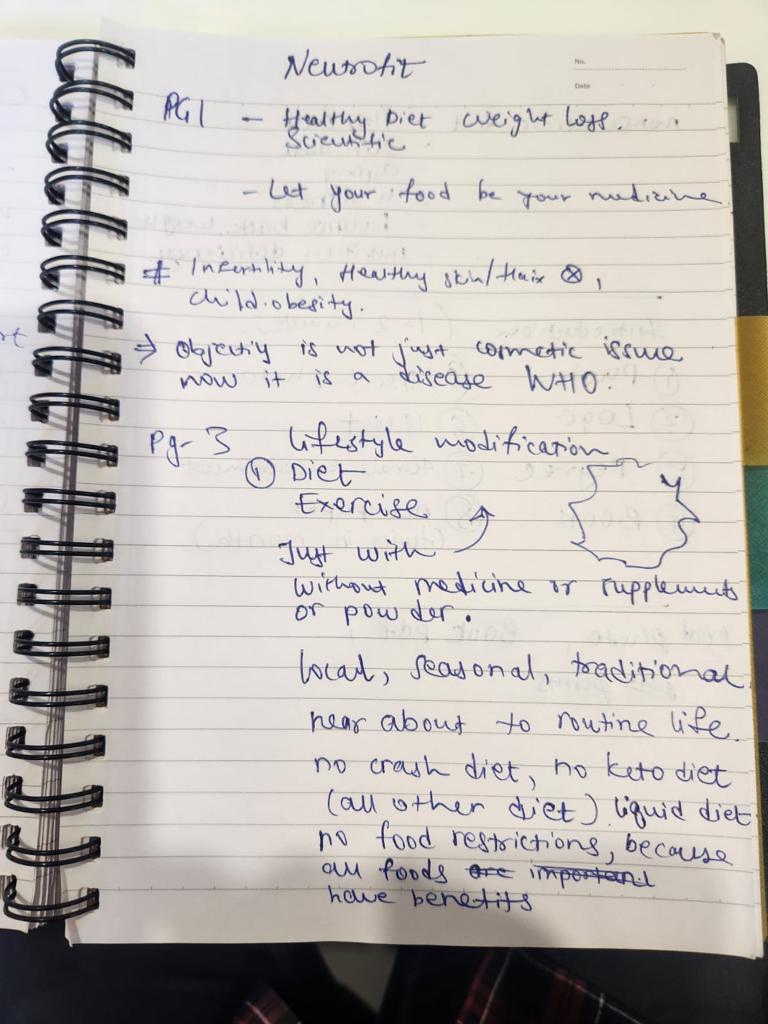 Neurofit
No.
Date
PG1 - Healthy Diet weight loss.
Scientific
- Let your food be your medicine
# Infertility, Healthy skin/Hair ⊗,
child obesity.
⇒ Objectiy is not just cosmetic issue
now it is a disease WHO.
Pg-3 Lifestyle modification
① Diet
Exercise
Just with
without medicine or supplements
or powder.
local, seasonal, traditional.
near about to routine life.
no crash diet, no keto diet
(all other diet) liquid diet
no food restrictions, because
all foods are important
have benefits